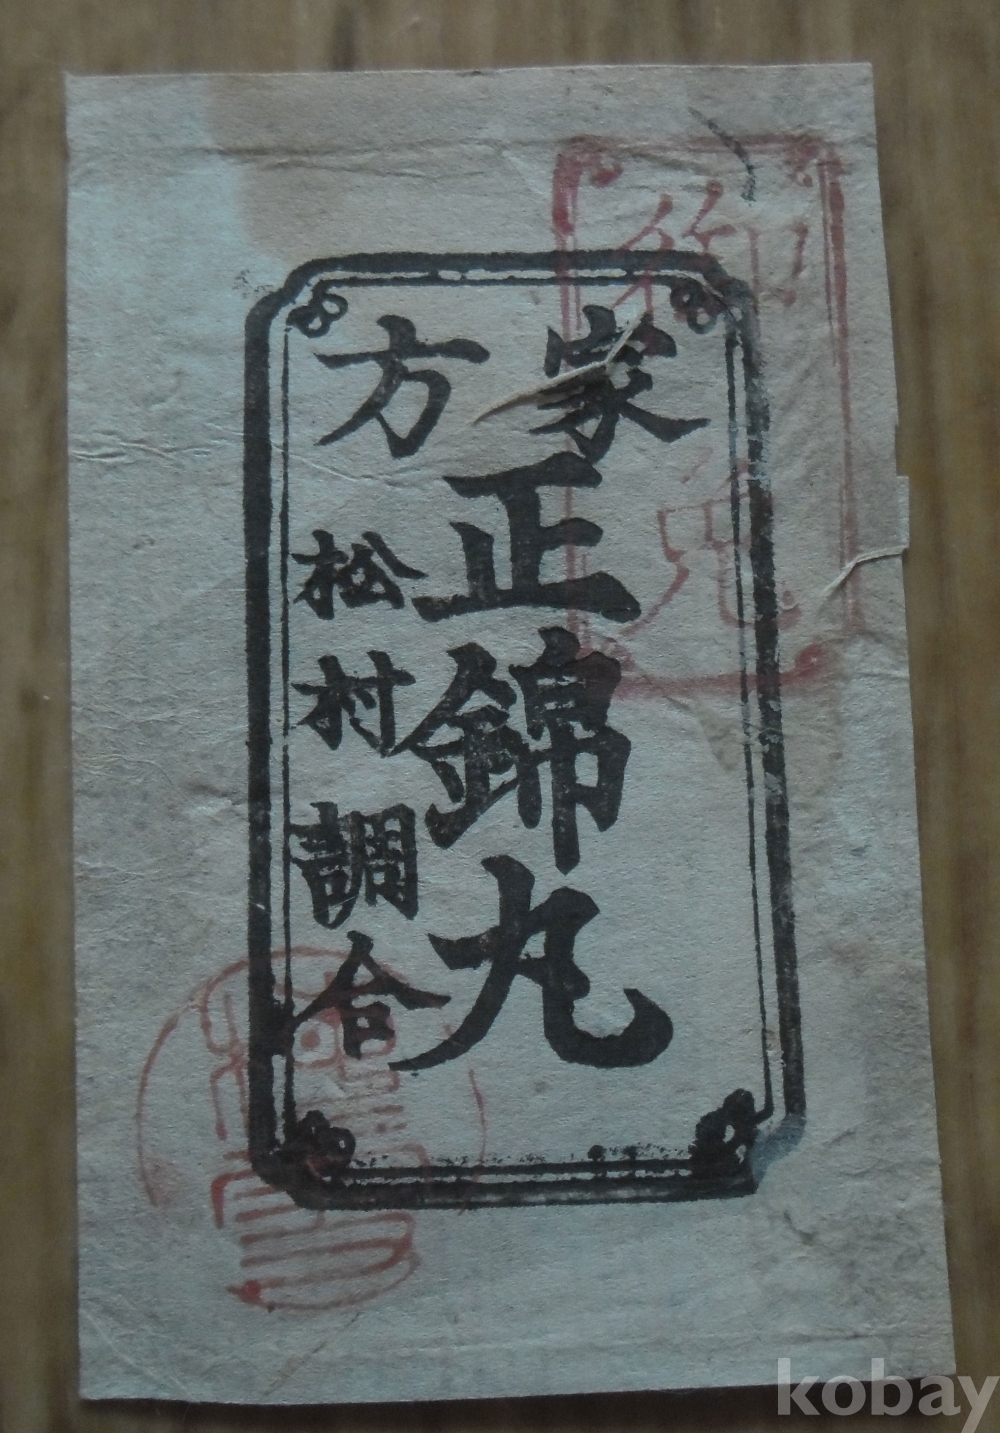 家方
正錦丸
松村調合
御免
kobay